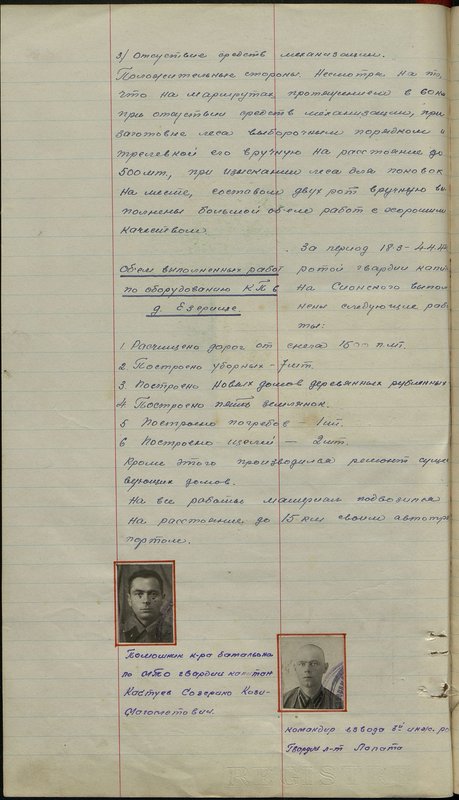 3) Отсуствие средств механизации.
Положительные стороны. Несмотря на то,
что на маршрутах протяжением в
при отсуствии средств механизации, при
заготовке леса выборочным порядком и
трелевкой его вручную на расстояние до
500мт, при изыскании леса для поковок
на месте, составом двух рот вручную вы-
полнены большой об'ем работ с хорошим
качеством.
За период 18.3 - 4.4.44
Объем выполненных работ
ротой гвардии капи-
по оборудованию КП в
на Сионского выпол-
д. Езерище
нены следующие рабо-
ты:
1. Расчищено дорог от снега 1500 п.мт.
2. Построено уборных - 7 шт.
3. Построено новых домов деревянных рубленных
4. Построено пять землянок.
5 Построено погребов - 1 шт.
6 Построено щелей - 2 шт.
Кроме этого производился ремонт сущест-
вующих домов.
На все работы материал подвозился
на расстояние до 15 км своим автотранс-
портом.
Помошник к-ра батальона
по МТО гвардии капитан
Кастуев Созерико Кази-
Магометович.
Командир взвода 3й инж. ро
Гвардии л-т Лопата
REGIS